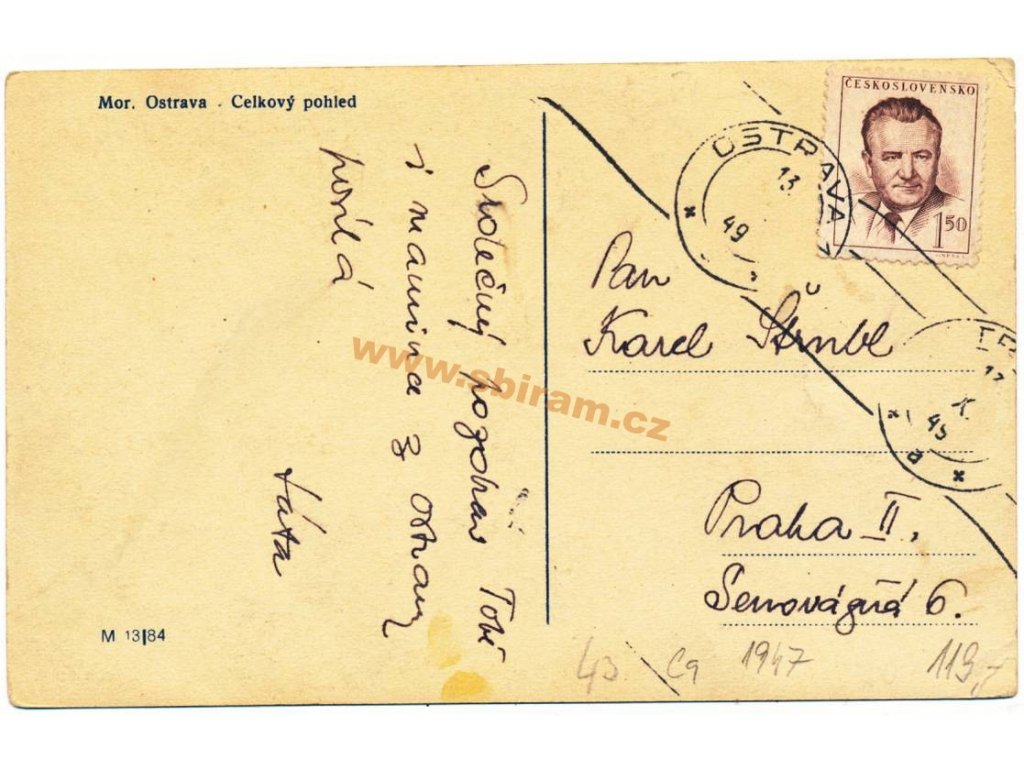 Mor. Ostrava - Celkový pohled
Srdečný pozdrav Tobě
i mamince z Ostravy
posílá
táta
M 13|84
ČESKOSLOVENSKO
1.50
OSTRAVA
13
49
Pan
Karel Štrubl
Praha II.
Senovážná 6.
13
X
49
a
43
ca 1947
119,-
www.sbiram.cz